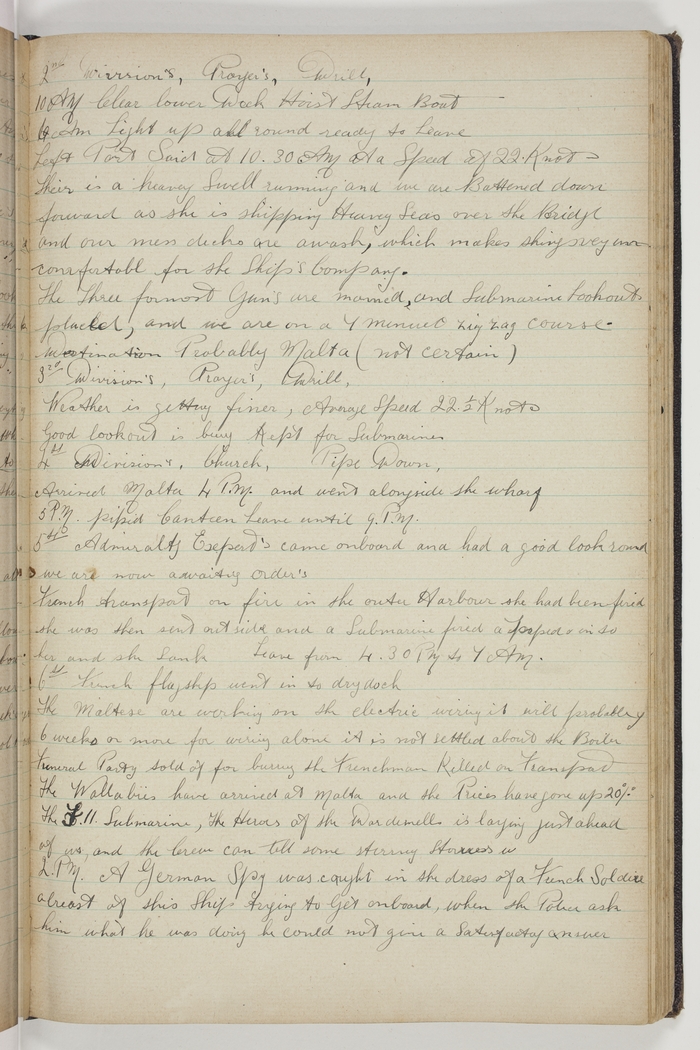 2nd Division's, Prayer's, Drill,
10 AM Clear lower Deck Hoist Steam Boat
Am Light up all round ready to Leave
Left Port Said at 10.30 AM at a Speed of 22 Knots
Their is a heavey Swell running and we are Battened down
forward as she is shipping Heavey Seas over the Bridge
and our mess decks are awash, which makes things very un
comfortabl for the Ship's Company.
The Three formost Gun's are manned, and Submarine Lookouts
placed, and we are on a 4 minuet zig zag course.
Destination Probably Malta (not certain)
3rd Division's, Prayer's, Drill,
Weather is getting finer, Average Speed 22.½ Knots
Good lookout is being Kept for Submarines
4st Division's, Church, Pipe Down,
Arrived Malta 4 P.M. and went alongside the wharf
5 P.M. pipid Canteen Leave until 9. P.M.
5st Admiralty Exeperd's came onboard and had a good look round
we are now awaiting order's
French transport on fire in the outer Harbour she had been fired
she was then sent outside and a Submarine fired a Topedo on to
her and she Sank Leave from 4.30 PM to 7 AM.
6st French flagship went in to drydock
The Maltese are working on the electric wiring it will probabley
6 weeks or more for wiring alone it is not settled about the Boiler
Funeral Party told of for buring the Frenchman Killed on Transport
The Wallabies have arrived at Malta and the Prices have gone up 20%
The E.11. Submarine, the Heros of the Dardenells is laying just ahead
of us, and the Crew can tell some sterring Storries
2. P.M. A German Spy was caught in the dress of a French Soldier
abreast of this Ship trying to Get onboard, when the Police ask
him what he was doing he could not give a Satisfactory answer